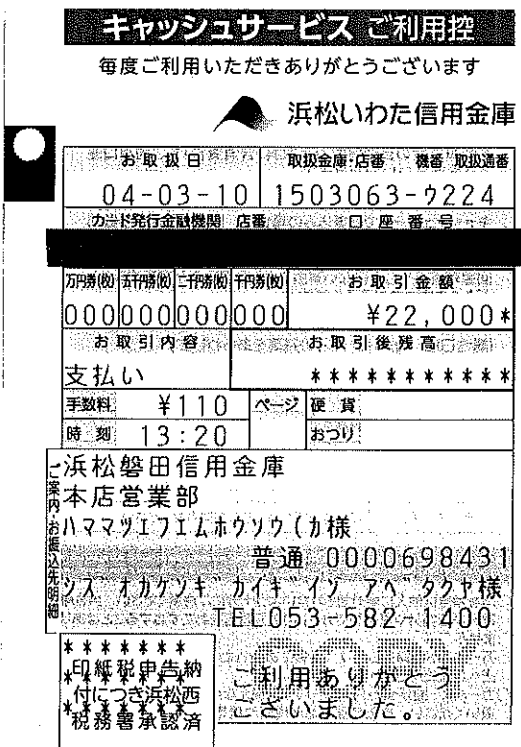 キャッシュサービス ご利用控
毎度ご利用いただきありがとうございます
浜松いわた信用金庫
お取扱日 取扱金庫・店番 機番 取扱通番
04-03-10 1503063-ウ224
カード発行金融機関 店番 口座番号
万円券(枚) 五千円券(枚) 二千円券(枚) 千円券(枚) お取引金額
000 000 000 000 ¥22,000*
お取引内容 お取引後残高
支払い ***********
手数料 ¥110 ページ 硬貨
時刻 13:20 おつり
ご案内・お振込先明細
浜松磐田信用金庫
本店営業部
ハママツエフエムホウソウ(カ様
普通 0000698431
シズオカケンギカイギイン アベタクヤ様
TEL053-582-1400
*******
印紙税申告納
付につき浜松西
税務署承認済
*******
COPY
ご利用ありがとう
ございました。